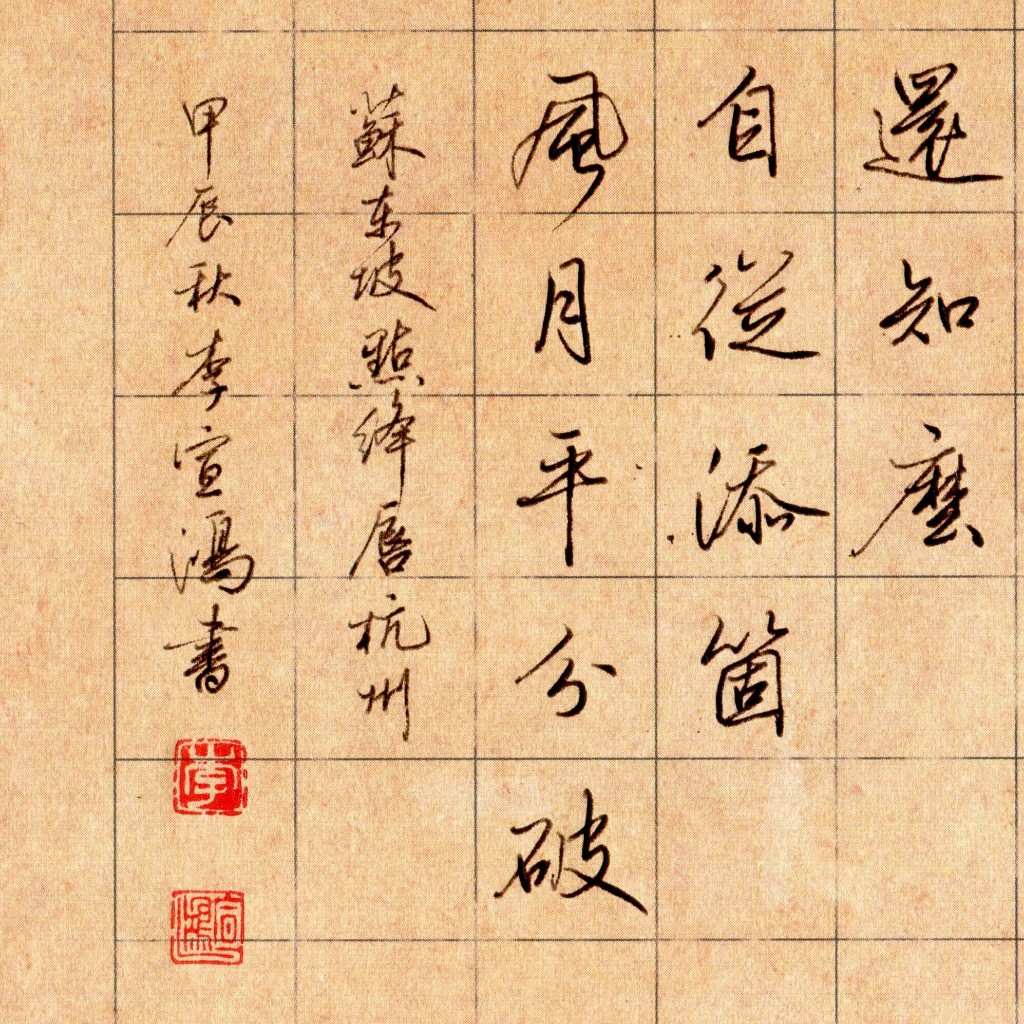 還知麼
自從添箇
風月平分破
蘇东坡點絳唇杭州
甲辰秋李宣鴻書
李
宣鴻